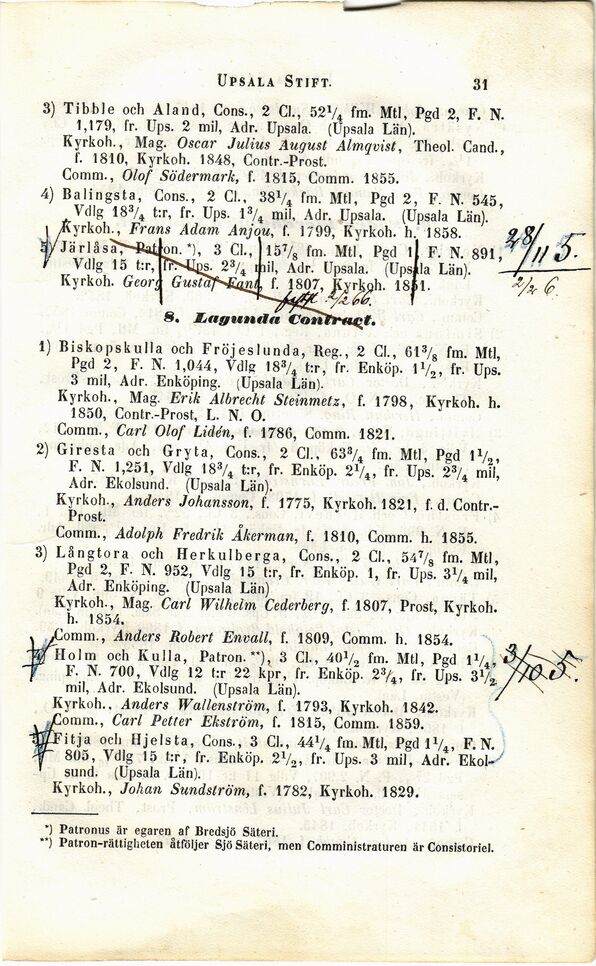 UPSALA STIFT. 31
3) Tibble och Aland, Cons., 2 Cl., 52¹/₄ fm. Mtl, Pgd 2, F. N.
1,179, fr. Ups. 2 mil, Adr. Upsala. (Upsala Län).
Kyrkoh., Mag. Oscar Julius August Almqvist, Theol. Cand.,
f. 1810, Kyrkoh. 1848, Contr.-Prost.
Comm., Olof Södermark, f. 1815, Comm. 1855.
4) Balingsta, Cons., 2 Cl., 38¹/₄ fm. Mtl, Pgd 2, F. N. 545,
Vdlg 18³/₄ t:r, fr. Ups. 1³/₄ mil, Adr. Upsala. (Upsala Län).
Kyrkoh., Frans Adam Anjou, f. 1799, Kyrkoh. h. 1858.
28/11 5.
5) Järlåsa, Patron. *), 3 Cl., 15⁷/₈ fm. Mtl, Pgd 1, F. N. 891,
Vdlg 15 t:r, fr. Ups. 2³/₄ mil, Adr. Upsala. (Upsala Län).
2/2 6.
Kyrkoh. Georg Gustaf Fant, f. 1807, Kyrkoh. 1851.
2/2 66.
8. Lagunda Contract.
1) Biskopskulla och Fröjeslunda, Reg., 2 Cl., 61³/₈ fm. Mtl,
Pgd 2, F. N. 1,044, Vdlg 18³/₄ t:r, fr. Enköp. 1¹/₂, fr. Ups.
3 mil, Adr. Enköping. (Upsala Län).
Kyrkoh., Mag. Erik Albrecht Steinmetz, f. 1798, Kyrkoh. h.
1850, Contr.-Prost, L. N. O.
Comm., Carl Olof Lidén, f. 1786, Comm. 1821.
2) Giresta och Gryta, Cons., 2 Cl., 63³/₄ fm. Mtl, Pgd 1¹/₂,
F. N. 1,251, Vdlg 18³/₄ t:r, fr. Enköp. 2¹/₄, fr. Ups. 2³/₄ mil,
Adr. Ekolsund. (Upsala Län).
Kyrkoh., Anders Johansson, f. 1775, Kyrkoh. 1821, f. d. Contr.-
Prost.
Comm., Adolph Fredrik Åkerman, f. 1810, Comm. h. 1855.
3) Långtora och Herkulberga, Cons., 2 Cl., 54⁷/₈ fm. Mtl,
Pgd 2, F. N. 952, Vdlg 15 t:r, fr. Enköp. 1, fr. Ups. 3¹/₄ mil,
Adr. Enköping. (Upsala Län)
Kyrkoh., Mag. Carl Wilhelm Cederberg, f. 1807, Prost, Kyrkoh.
h. 1854.
Comm., Anders Robert Envall, f. 1809, Comm. h. 1854.
4) Holm och Kulla, Patron. **), 3 Cl., 40¹/₂ fm. Mtl, Pgd 1¹/₄,
3/10 5.
F. N. 700, Vdlg 12 t:r 22 kpr, fr. Enköp. 2³/₄, fr. Ups. 3¹/₂
mil, Adr. Ekolsund. (Upsala Län).
Kyrkoh., Anders Wallenström, f. 1793, Kyrkoh. 1842.
Comm., Carl Petter Ekström, f. 1815, Comm. 1859.
5) Fitja och Hjelsta, Cons., 3 Cl., 44¹/₄ fm. Mtl, Pgd 1¹/₄, F. N.
805, Vdlg 15 t:r, fr. Enköp. 2¹/₂, fr. Ups. 3 mil, Adr. Ekol-
sund. (Upsala Län).
Kyrkoh., Johan Sundström, f. 1782, Kyrkoh. 1829.
*) Patronus är egaren af Bredsjö Säteri.
**) Patron-rättigheten åtföljer Sjö Säteri, men Comministraturen är Consistoriel.